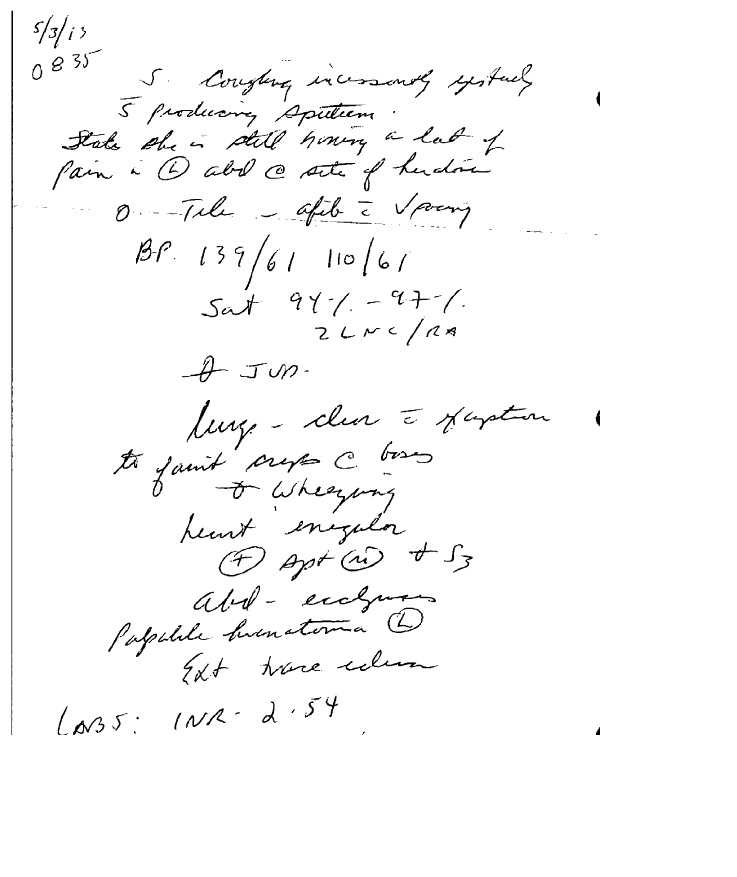 5/3/13
0835
S. Coughing incessantly yesterday
s̄ producing sputum.
States she is still having a lot of
pain in Ⓛ abd @ site of
O - Tele - afib c̄ Vpacing
BP. 139/61 110/61
Sat 94% - 97%
2 L NC/RA
∅ JVD.
lungs - clear c̄ exception
to faint creps @ bases
∅ wheezing
heart irregular
⊕ Ap+ ⓜ ∅ S3
Abd - ecchymosis
Palpable hematoma Ⓛ
Ext trace edema
LABS: INR - 2.54